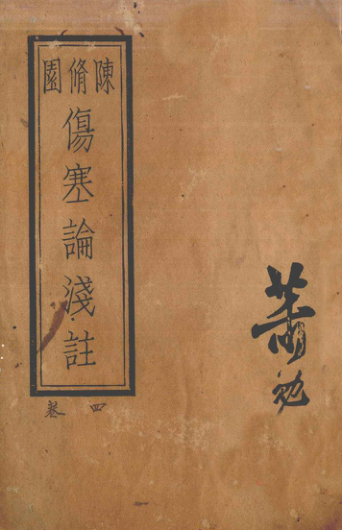 陳脩園
傷塞論淺註
四卷
蕭